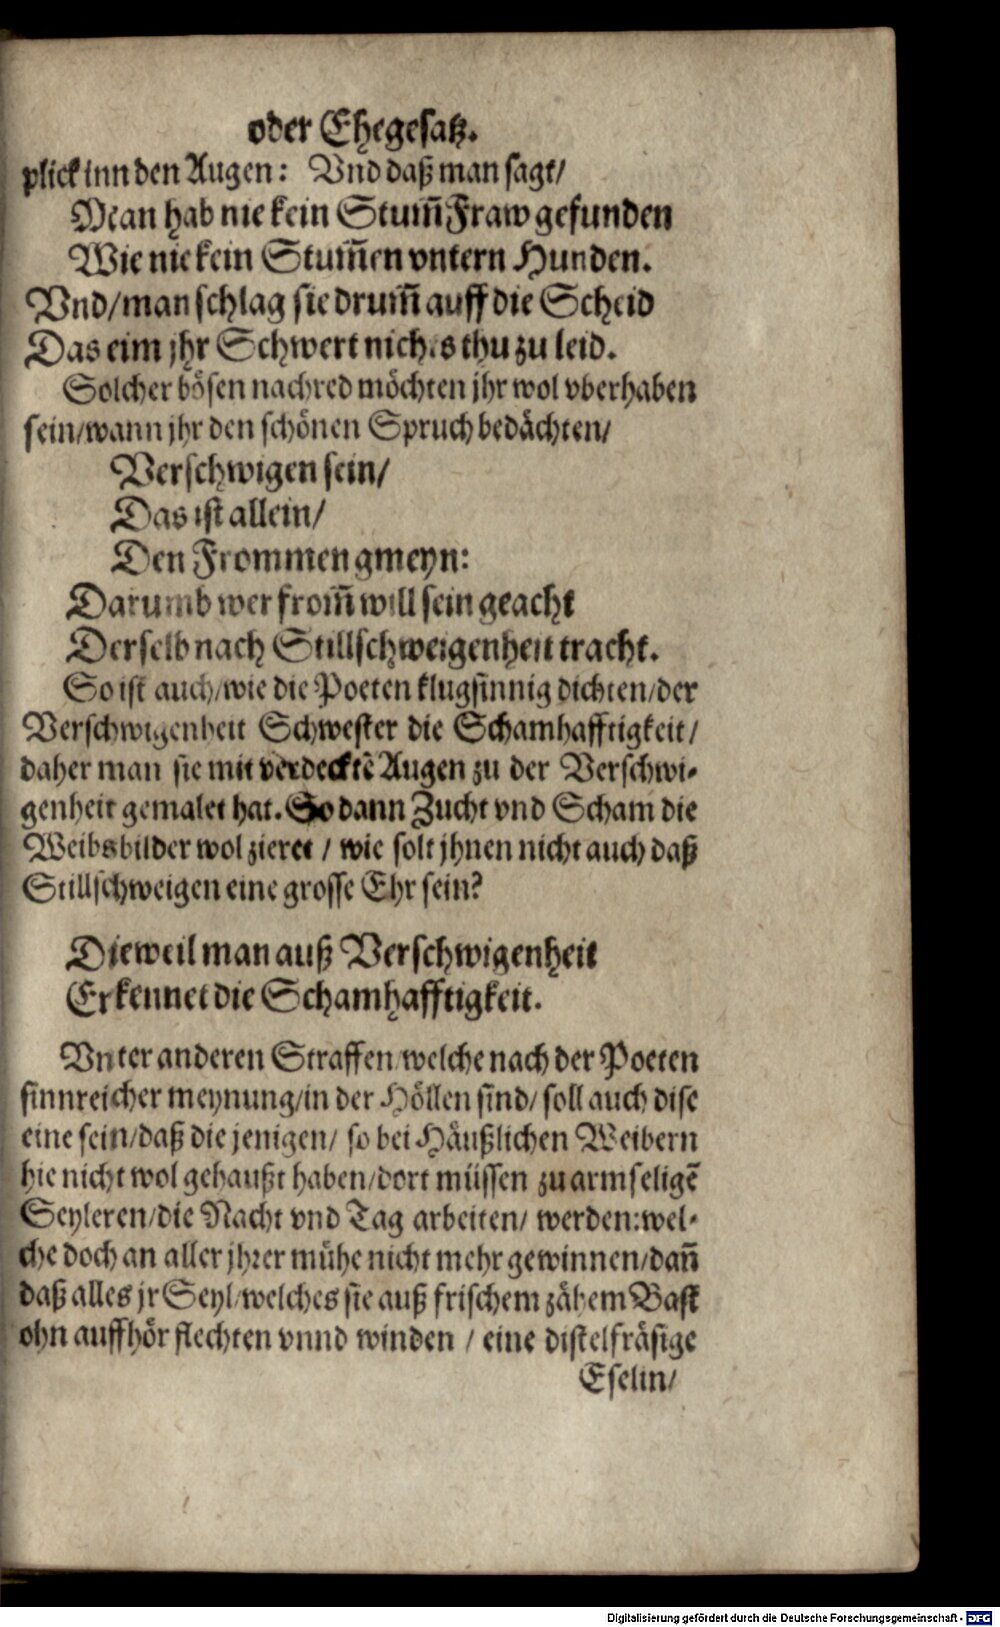 oder Ehegesatz.
plick inn den Augen: Vnd daß man sagt/
Man hab nie kein Stum̄ Fraw gefunden
Wie nie kein Stum̄en vntern Hunden.
Vnd/man schlag sie drum̄ auff die Scheid
Das eim jhr Schwert nichts thu zu leid.
Solcher bösen nachred möchten jhr wol vberhaben
sein/wann jhr den schönen Spruch bedächten/
Verschwigen sein/
Das ist allein/
Den Frommen gmeyn:
Darumb wer from̄ will sein geacht
Derselb nach Stillschweigenheit tracht.
So ist auch/wie die Poeten klugsinnig dichten/der
Verschwigenheit Schwester die Schamhafftigkeit/
daher man sie mit verdecktē Augen zu der Verschwi-
genheit gemalet hat. So dann Zucht vnd Scham die
Weibsbilder wol zieret / wie solt jhnen nicht auch daß
Stillschweigen eine grosse Ehr sein?
Dieweil man auß Verschwigenheit
Erkennet die Schamhafftigkeit.
Vnter anderen Straffen/welche nach der Poeten
sinnreicher meynung/in der Höllen sind/ soll auch dise
eine sein/daß die jenigen/ so bei Häußlichen Weibern
hie nicht wol gehaußt haben/dort müssen zu armseligē
Seyleren/die Nacht vnd Tag arbeiten/ werden:wel-
che doch an aller jhrer mühe nicht mehr gewinnen/dañ
daß alles jr Seyl/welches sie auß frischem zähem Bast
ohn auffhör flechten vnnd winden / eine distelfräsige
Eselin/
Digitalisierung gefördert durch die Deutsche Forschungsgemeinschaft - DFG